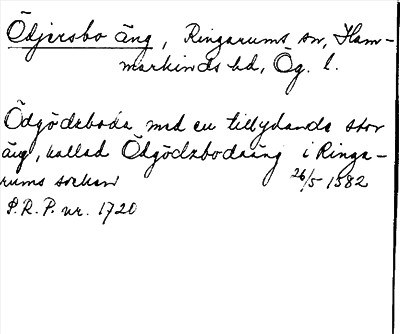 Ödjersbo äng, Ringarums sn, Ham-
markinds hd, Ög. l.
Ödgödzboda med en tillydande stor
äng, kallad Ödgödzbodaäng i Ringa-
rums socken 26/5 1582
P.R.P. nr. 1720